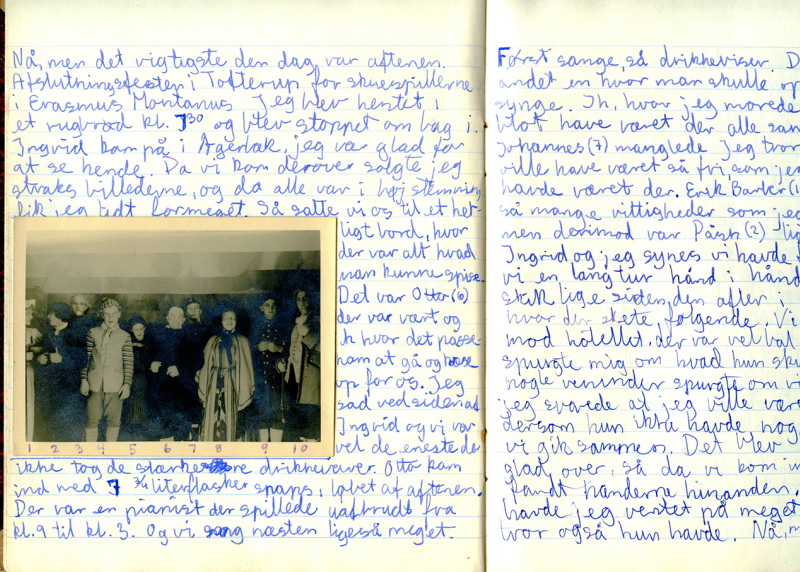 Nå, men det vigtigste den dag var aftenen.
Afslutningsfesten i Tofterup for skuespillerne
i Erasmus Montanus Jeg blev hentet i
et rugbrød kl. 7³⁰ og blev stoppet om bag i.
Ingrid kom på i Agerbæk, jeg var glad for
at se hende. Da vi kom derover solgte jeg
straks billederne, og da alle var i høj stemning
fik jeg lidt formeget. Så satte vi os til et her-
ligt bord, hvor
der var alt hvad
man kunne spise.
Det var Otto (6)
der var vært og
Ih hvor det passe-
ham at gå og
op for os. Jeg
sad ved siden af
Ingrid og vi var
vel de eneste der
1 2 3 4 5 6 7 8 9 10
ikke tog de stærkere drikkevarer. Otto kom
ind med 7 3/4 literflasker snaps i løbet af aftenen.
Der var en pianist der spillede uafbrudt fra
kl. 9 til kl. 3. Og vi sang næsten ligeså meget.
Først sange, så drikkeviser. D
andet en hvor man skulle op
synge. Ih, hvor jeg morede
blot have været der alle sam
Johannes (7) manglede Jeg tror
ville have været så fri som jeg
havde været der. Erik Barker (1
så mange vittigheder som jeg
men derimod var (2) lig
Ingrid og jeg synes vi havde
vi en lang tur hånd i hånd
skik lige siden den aften i
hvor der skete følgende. Vi
mod hotellet, der var vel bal
spurgte mig om hvad hun sku
nogle veninder spurgte om vi
jeg svarede at jeg ville være
dersom hun ikke havde nog
vi gik sammen. Det blev
glad over, så da vi kom in
fandt hænderne hinanden.
havde jeg ventet på meget
tror også hun havde. Nå, m